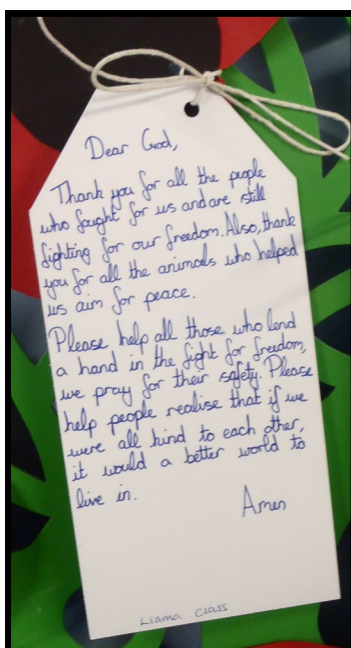 Dear God,
Thank you for all the people
who fought for us and are still
fighting for our freedom. Also, thank
you for all the animals who helped
us aim for peace.
Please help all those who lend
a hand in the fight for freedom,
we pray for their safety. Please
help people realise that if we
were all kind to each other,
it would a better world to
live in.
Amen
Llama class